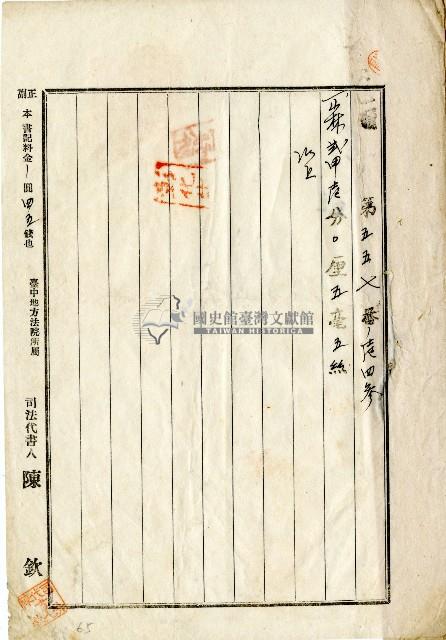 第五五七番ノ壱四参
一、山林貳甲壱分〇厘五毫五絲
以上
國史館臺灣文獻館
TAIWAN HISTORICA
正副 本書記料金 圓四五錢也 臺中地方法院所屬 司法代書人 陳欽
65